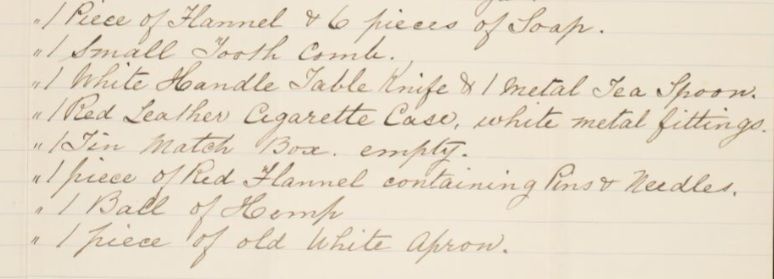 " 1 Piece of Flannel & 6 pieces of Soap.
" 1 Small Tooth Comb.
" 1 White Handle Table Knife & 1 metal Tea Spoon.
" 1 Red Leather Cigarette Case, white metal fittings.
" 1 Tin Match Box. empty.
" 1 piece of Red Flannel containing Pins & Needles.
" 1 Ball of Hemp
" 1 piece of old White Apron.